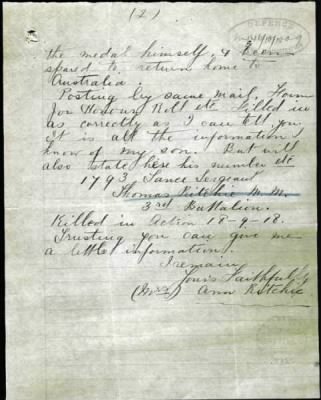 (2)
DEFENCE
the medal himself, & been
spared to return home to
Australia.
Posting by same mail, Form
for Honour Roll etc filled in
as correctly as I can tell you
it is all the information I
know of my son. But will
also state here his number etc
1793 Lance Sergeant
Thomas Ritchie M. M.
3rd Battalion.
Killed in Action 18-9-18.
Trusting you can give me
a little information.
I remain
Yours Faithfully
(Mrs) Ann Ritchie